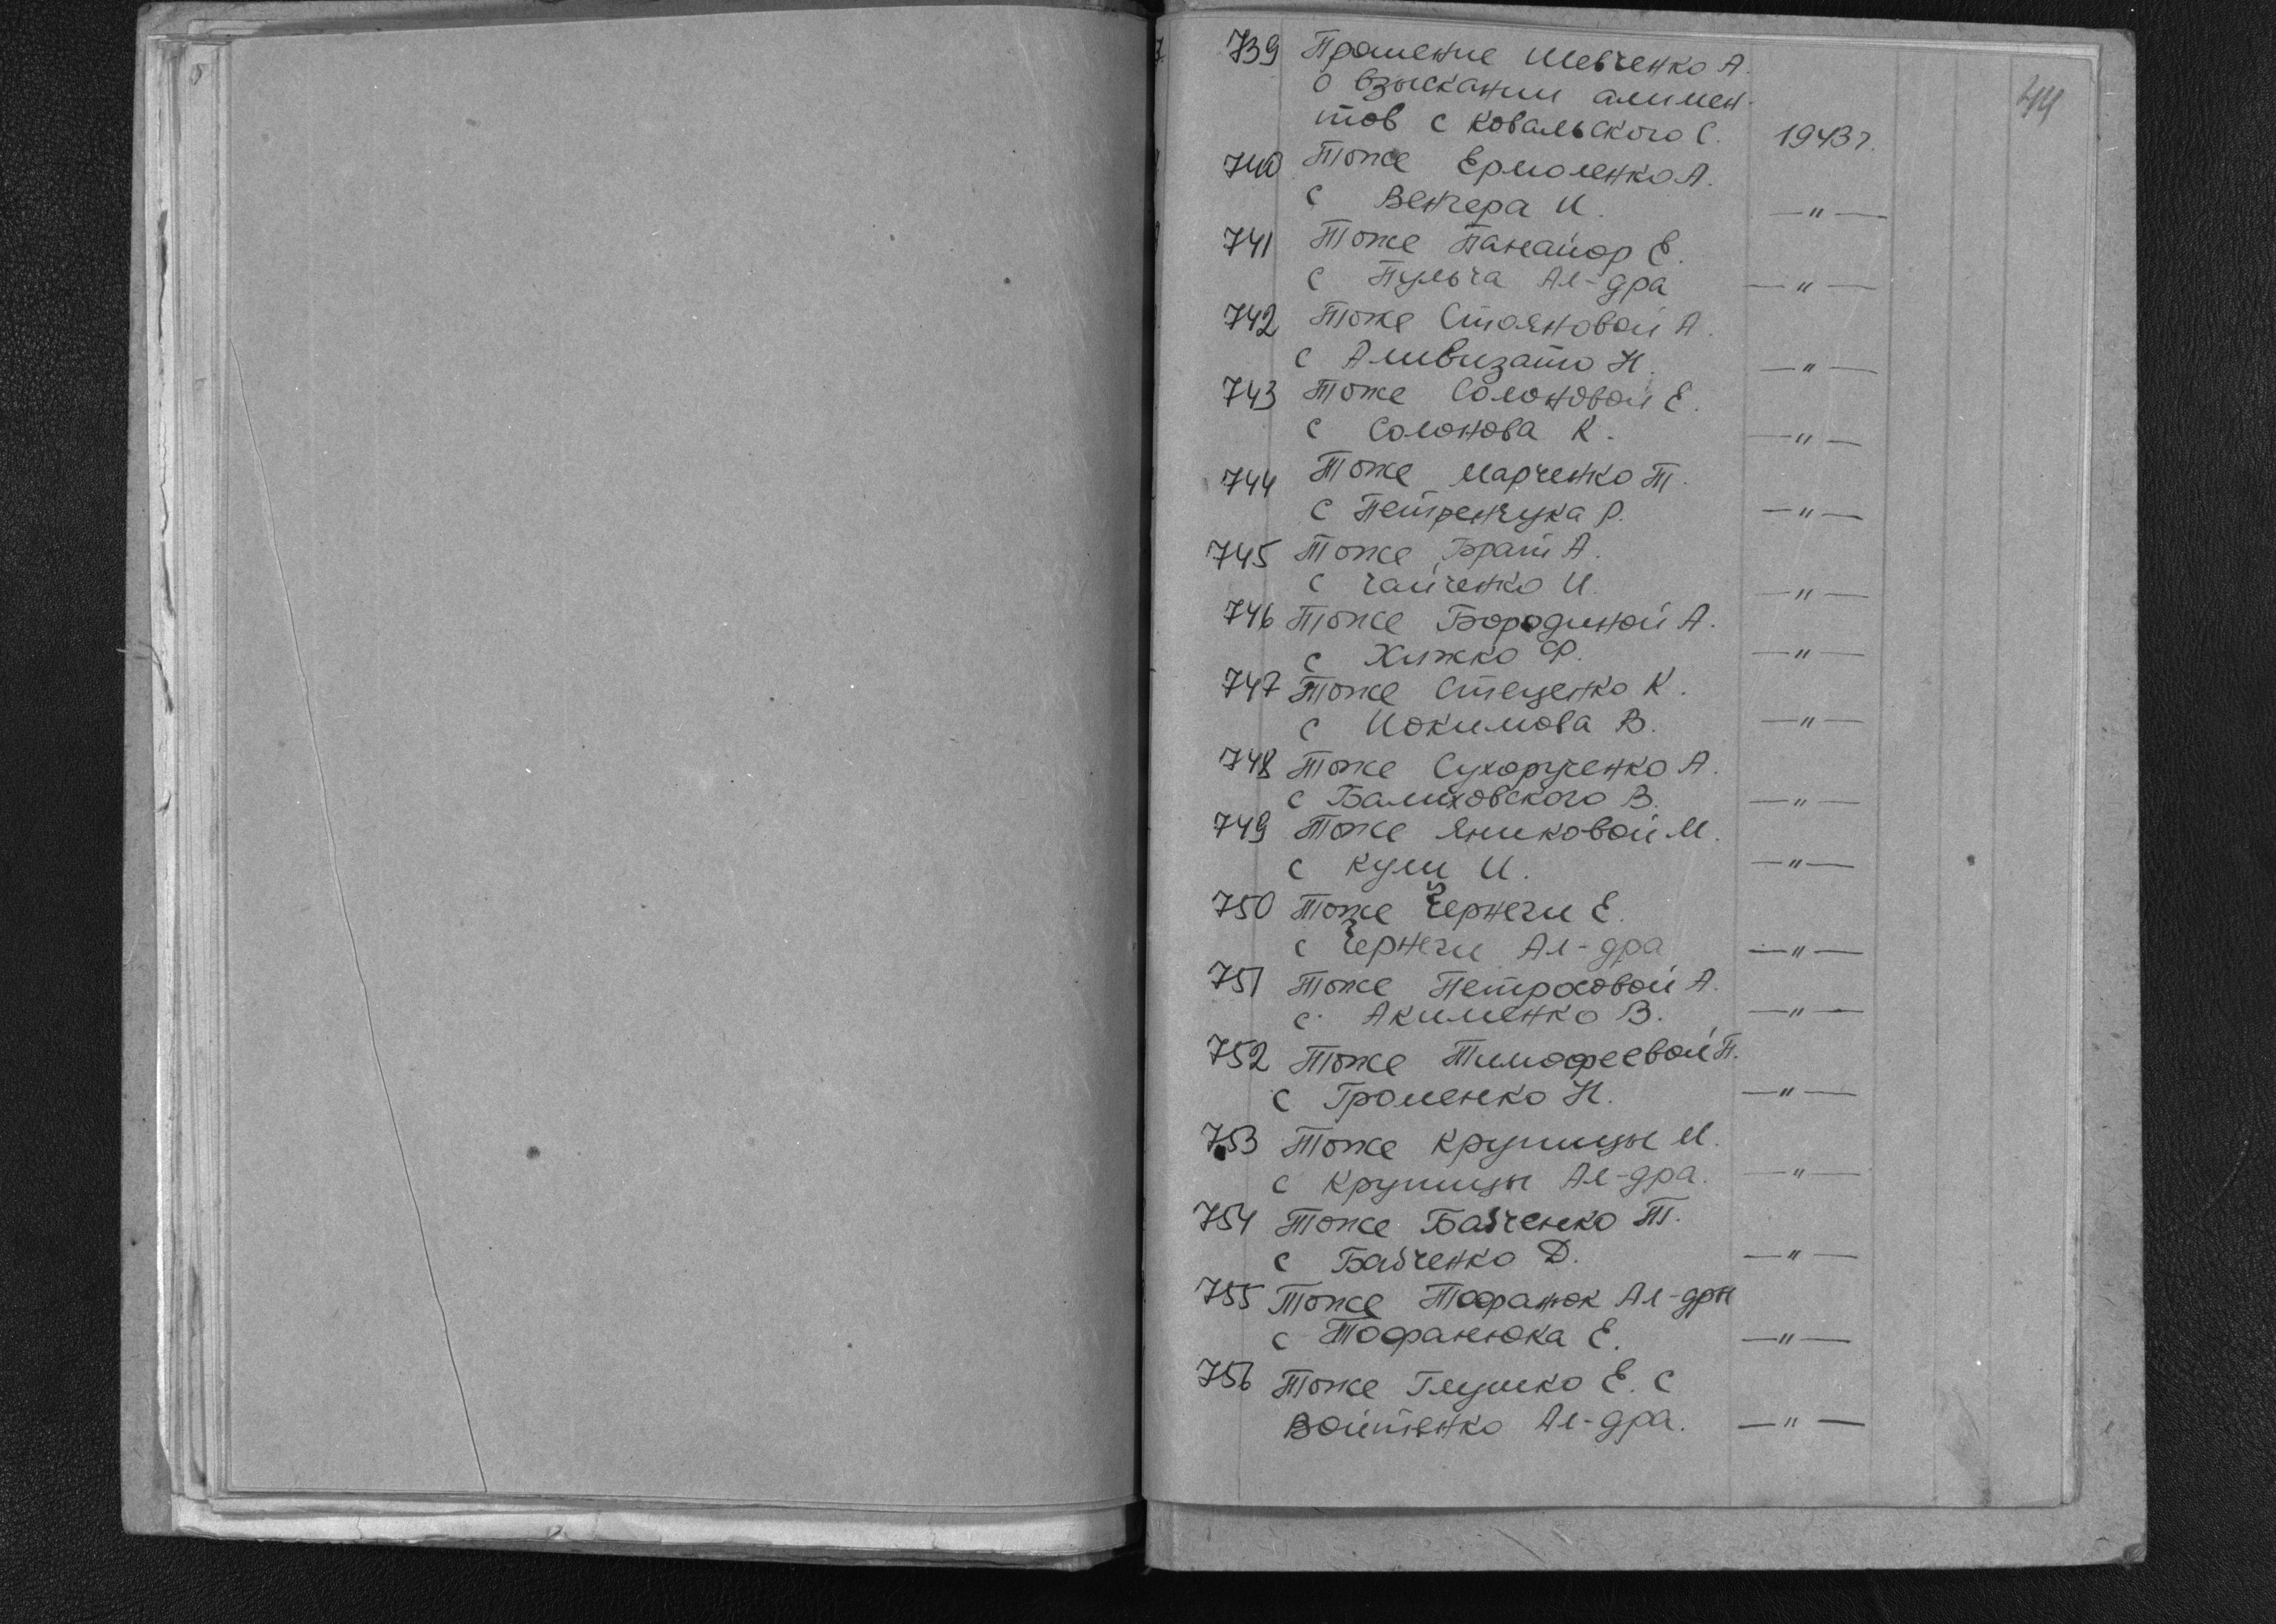 44
739 Прошение Шевченко А.
о взыскании алимен-
тов с Ковальского С. 1943 г.
740 Тоже Ермоленко А.
с Венгера И. —"—
741 Тоже Панайор Е.
с Пульча Ал-дра —"—
742 Тоже Стояновой А.
с Аливизато Н. —"—
743 Тоже Солоновой Е.
с Солонова К. —"—
744 Тоже Марченко Т.
с Петренчука Р. —"—
745 Тоже Брат А.
с Чайченко И. —"—
746 Тоже Бородиной А.
с Хижко Ф. —"—
747 Тоже Стеценко К.
с Иокимова В. —"—
748 Тоже Сухорученко А.
с Балиховского В. —"—
749 Тоже Яниковой М.
с Кули И. —"—
750 Тоже Чернеги Е.
с Чернеги Ал-дра —"—
751 Тоже Петроховой А.
с Акименко В. —"—
752 Тоже Тимофеевой П.
с Громенко Н. —"—
753 Тоже Крупицы М.
с Крупицы Ал-дра. —"—
754 Тоже Байченко Т.
с Байченко Д. —"—
755 Тоже Тофанюк Ал-дры
с Тофанюка Е. —"—
756 Тоже Глушко Е. с
Войтенко Ал-дра. —"—